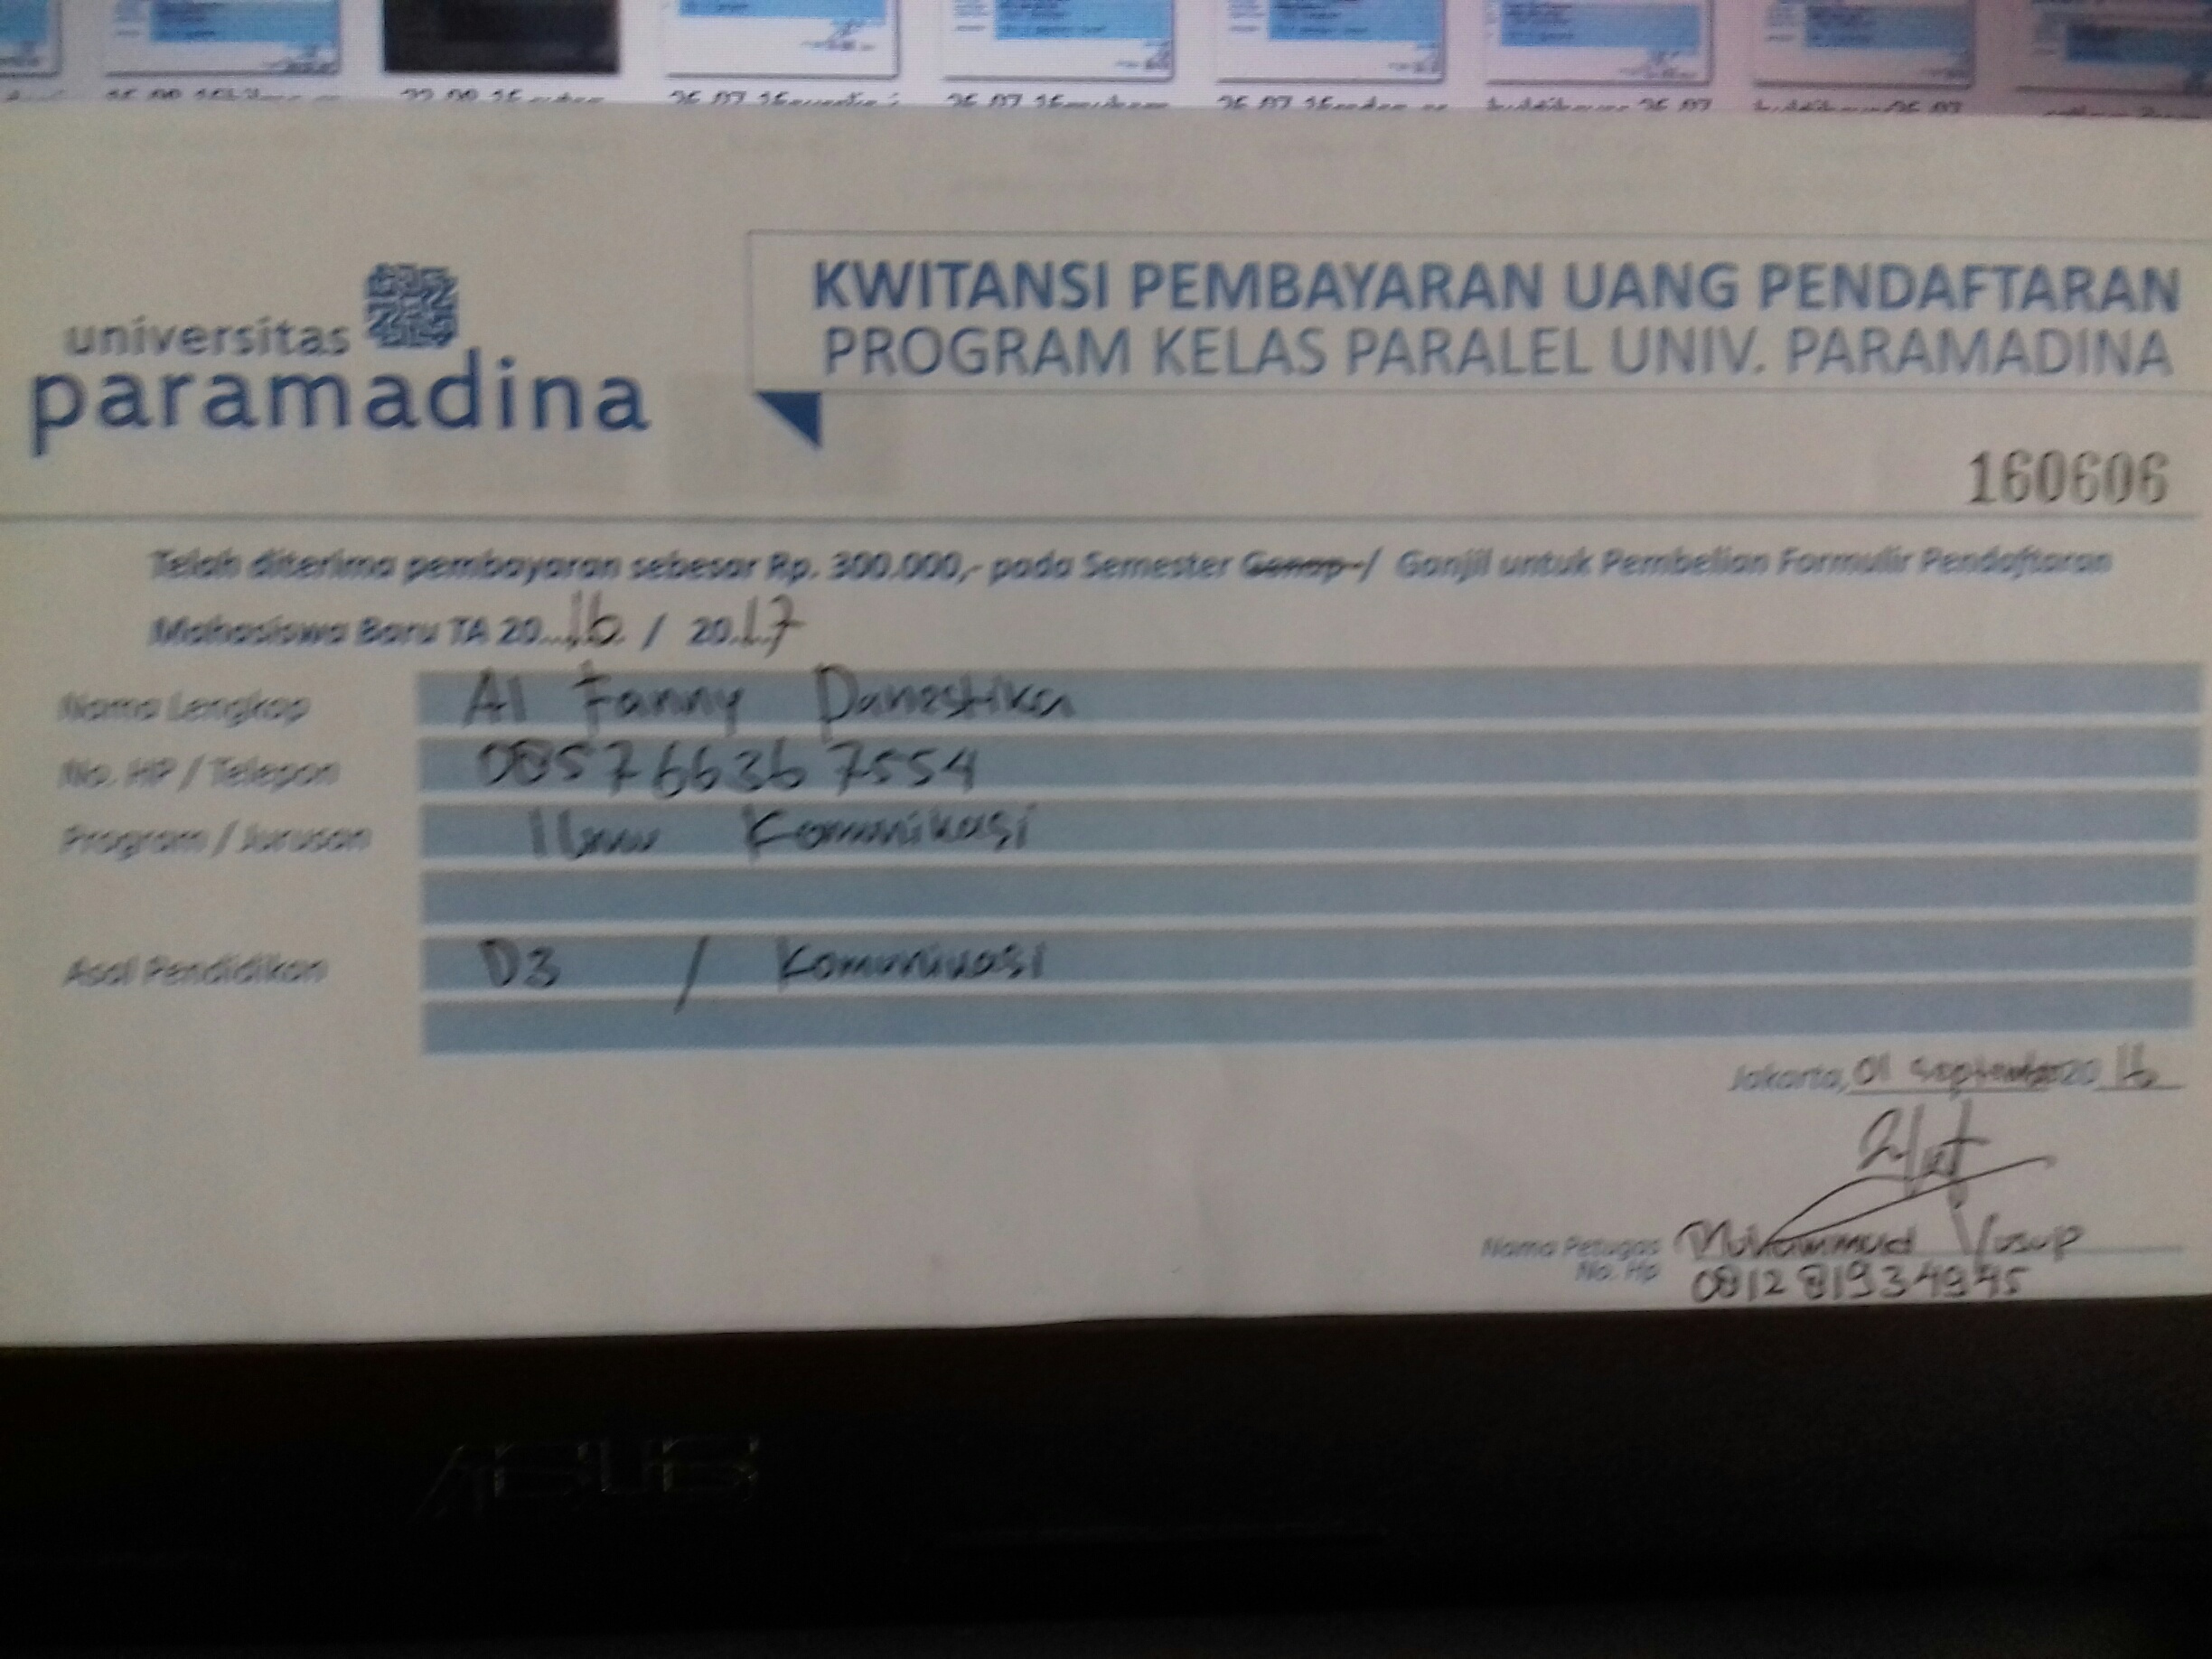 universitas
paramadina
KWITANSI PEMBAYARAN UANG PENDAFTARAN
PROGRAM KELAS PARALEL UNIV. PARAMADINA
160606
Telah diterima pembayaran sebesar Rp. 300.000,- pada Semester Genap / Ganjil untuk Pembelian Formulir Pendaftaran
Mahasiswa Baru TA 20 16 / 20 17
Nama Lengkap Al Fanny Danestika
No. HP / Telepon 085766367554
Program / Jurusan Ilmu Komunikasi
Asal Pendidikan D3 / Komunikasi
Jakarta, 01 September 20 16
Nama Petugas Muhammad Yusup
No. Hp 081281934945
ASUS